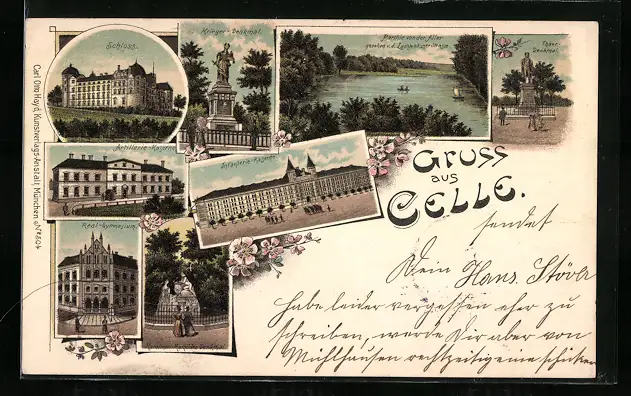 Schloss.
Krieger-Denkmal.
Partie von der Aller
gesehen v. d.
Thaer-
Denkmal.
Artillerie-Kaserne
Infanterie-Kaserne
Real-Gymnasium.
Carl Otto Hayd, Kunstverlags-Anstalt, München. No 504
Gruss
aus
Celle.
sendet
Dein Hans.
Habe leider vergessen eher zu
schreiben, werde Dir aber von
Mühlhausen rechtzeitig eine schicken